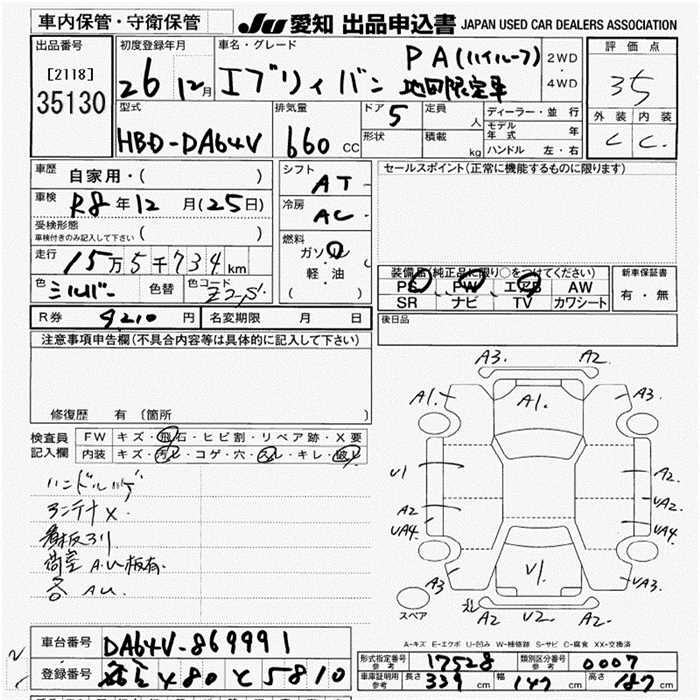 車内保管・守衛保管
JU 愛知 出品申込書 JAPAN USED CAR DEALERS ASSOCIATION
出品番号
[2118]
35130
初度登録年月
26 12月
車名・グレード
エブリィバン
PA(ハイルーフ)
地図限定車
2WD
・
4WD
評価点
3.5
外装 内装
C C
型式
HBD-DA64V
排気量
660 CC
ドア 5
形状
定員 人
積載 kg
ディーラー・並行
モデル年式 年
ハンドル 左・右
車歴 自家用・( )
車検 R8年12月(25日)
受検形態
車検付きのみ記入して下さい ( )
走行 15万5千734km
色 シルバー 色替 色コード Z2S
シフト AT
冷房 AC
燃料
ガソリン
軽・油
( )
セールスポイント(正常に機能するものに限ります)
装備品(純正品に限り○をつけてください)
PS PW エアB AW
SR ナビ TV カワシート
新車保証書
有・無
後日品
R券 9210 円 名変期限 月 日
注意事項申告欄(不具合内容等は具体的に記入して下さい)
修復歴 有 〔箇所 〕
検査員
記入欄
FW キズ・飛石・ヒビ割・リペア跡・X要
内装 キズ・汚レ・コゲ・穴・スレ・キレ・破レ
ハンドルハゲ
アンテナX
看板ヌリ
荷室A.U板有
各AU
A3. A2.
A1. A1. A3.
U1 A2.
A2 UA2.
UA4. UA4.
A3 U1. UA3.
A2 U2. A2
スペア
A-キズ E-エクボ U-凹み W-補修跡 S-サビ C-腐食 XX-交換済
車台番号 DA64V-869991
登録番号 480 と 5810
形式指定番号
参考 17528
類別区分番号
参考 0007
車庫証明用
参考 長さ 339cm 幅 147cm 高さ 187cm